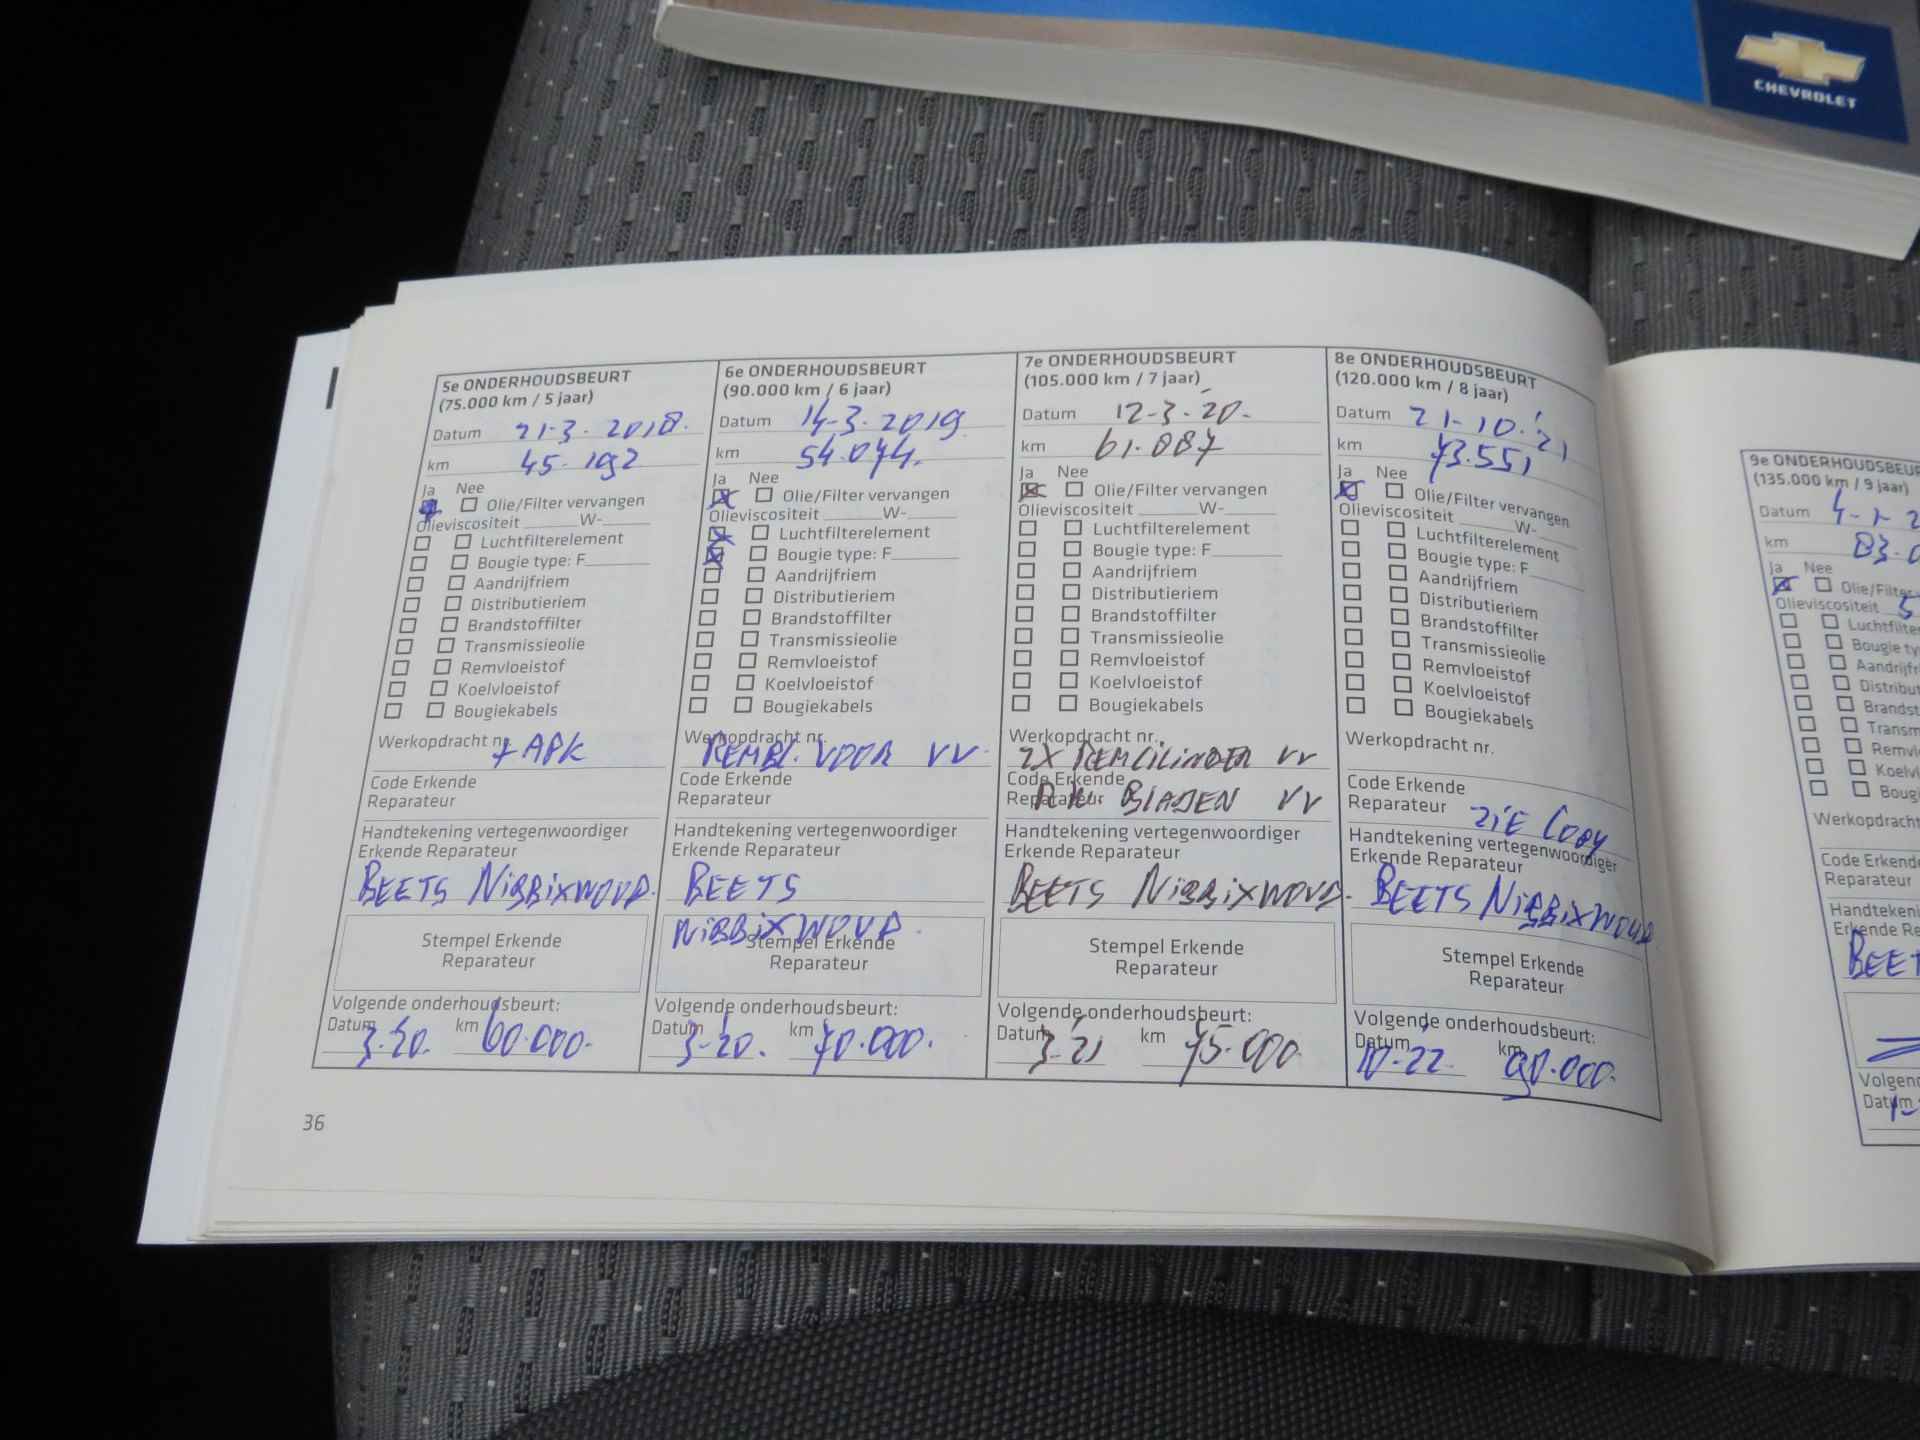 CHEVROLET
5e ONDERHOUDSBEURT
(75.000 km / 5 jaar)
Datum 21-3-2018.
km 45-192
Ja Nee
Olie/Filter vervangen
Olieviscositeit ______W-_____
Luchtfilterelement
Bougie type: F________
Aandrijfriem
Distributieriem
Brandstoffilter
Transmissieolie
Remvloeistof
Koelvloeistof
Bougiekabels
Werkopdracht nr.
+ APK
Code Erkende
Reparateur
Handtekening vertegenwoordiger
Erkende Reparateur
BEETS NIBBIXWOUD.
Stempel Erkende
Reparateur
Volgende onderhoudsbeurt:
Datum km
3-20. 60.000.
6e ONDERHOUDSBEURT
(90.000 km / 6 jaar)
Datum 14-3-2019
km 54.074.
Ja Nee
Olie/Filter vervangen
Olieviscositeit ______W-_____
Luchtfilterelement
Bougie type: F________
Aandrijfriem
Distributieriem
Brandstoffilter
Transmissieolie
Remvloeistof
Koelvloeistof
Bougiekabels
Werkopdracht nr.
REMBL. VOOR VV.
Code Erkende
Reparateur
Handtekening vertegenwoordiger
Erkende Reparateur
BEETS
NIBBIXWOUD.
Stempel Erkende
Reparateur
Volgende onderhoudsbeurt:
Datum km
3-20. 70.000.
7e ONDERHOUDSBEURT
(105.000 km / 7 jaar)
Datum 12-3-'20.
km 61.087
Ja Nee
Olie/Filter vervangen
Olieviscositeit ______W-_____
Luchtfilterelement
Bougie type: F________
Aandrijfriem
Distributieriem
Brandstoffilter
Transmissieolie
Remvloeistof
Koelvloeistof
Bougiekabels
Werkopdracht nr.
2X REMCILINDER VV
Code Erkende
Reparateur
BLADEN VV
Handtekening vertegenwoordiger
Erkende Reparateur
BEETS NIBBIXWOUD.
Stempel Erkende
Reparateur
Volgende onderhoudsbeurt:
Datum km
3-'21 75.000.
8e ONDERHOUDSBEURT
(120.000 km / 8 jaar)
Datum 21-10-'21
km 73.551
Ja Nee
Olie/Filter vervangen
Olieviscositeit ______W-_____
Luchtfilterelement
Bougie type: F________
Aandrijfriem
Distributieriem
Brandstoffilter
Transmissieolie
Remvloeistof
Koelvloeistof
Bougiekabels
Werkopdracht nr.
Code Erkende
Reparateur
ZIE COPY
Handtekening vertegenwoordiger
Erkende Reparateur
BEETS NIBBIXWOUD
Stempel Erkende
Reparateur
Volgende onderhoudsbeurt:
Datum km
10-'22. 90.000.
36
9e ONDERHOUDSBEUR
(135.000 km / 9 jaar)
Datum 4-1-2
km 83.0
Ja Nee
Olie/Filter
Olieviscositeit 5
Luchtfilte
Bougie ty
Aandrijfr
Distribut
Brandst
Transm
Remvl
Koelvl
Boug
Werkopdracht
Code Erkende
Reparateur
Handteken
Erkende Re
BEET
Volgen
Datum
1-